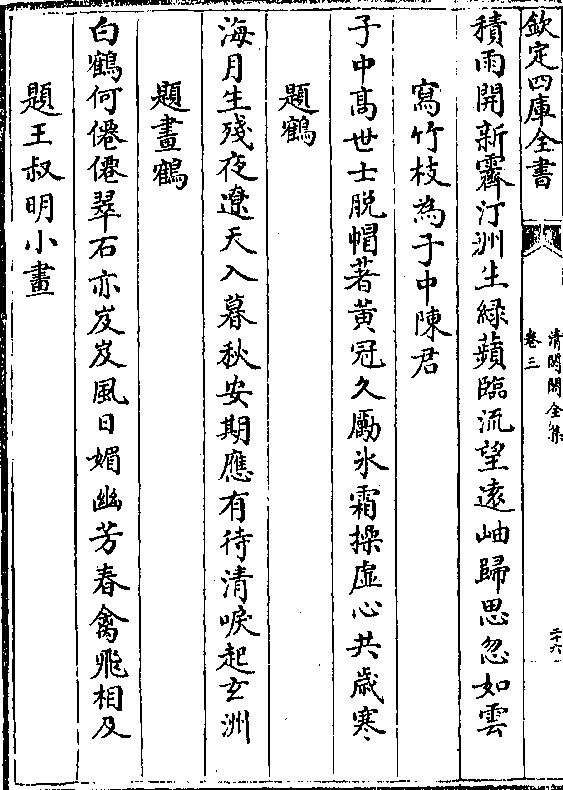 欽定四庫全書
清閟閣全集
卷三
二十六
積雨開新霽汀洲生緑蘋臨流望遠岫歸思忽如雲
寫竹枝為子中陳君
子中髙世士脱帽著黄冠久勵氷霜操虚心共歳寒
題鶴
海月生殘夜遼天入暮秋安期應有待清唳起玄洲
題畫鶴
白鶴何僊僊翠石亦岌岌風日媚幽芳春禽飛相及
題王叔明小畫